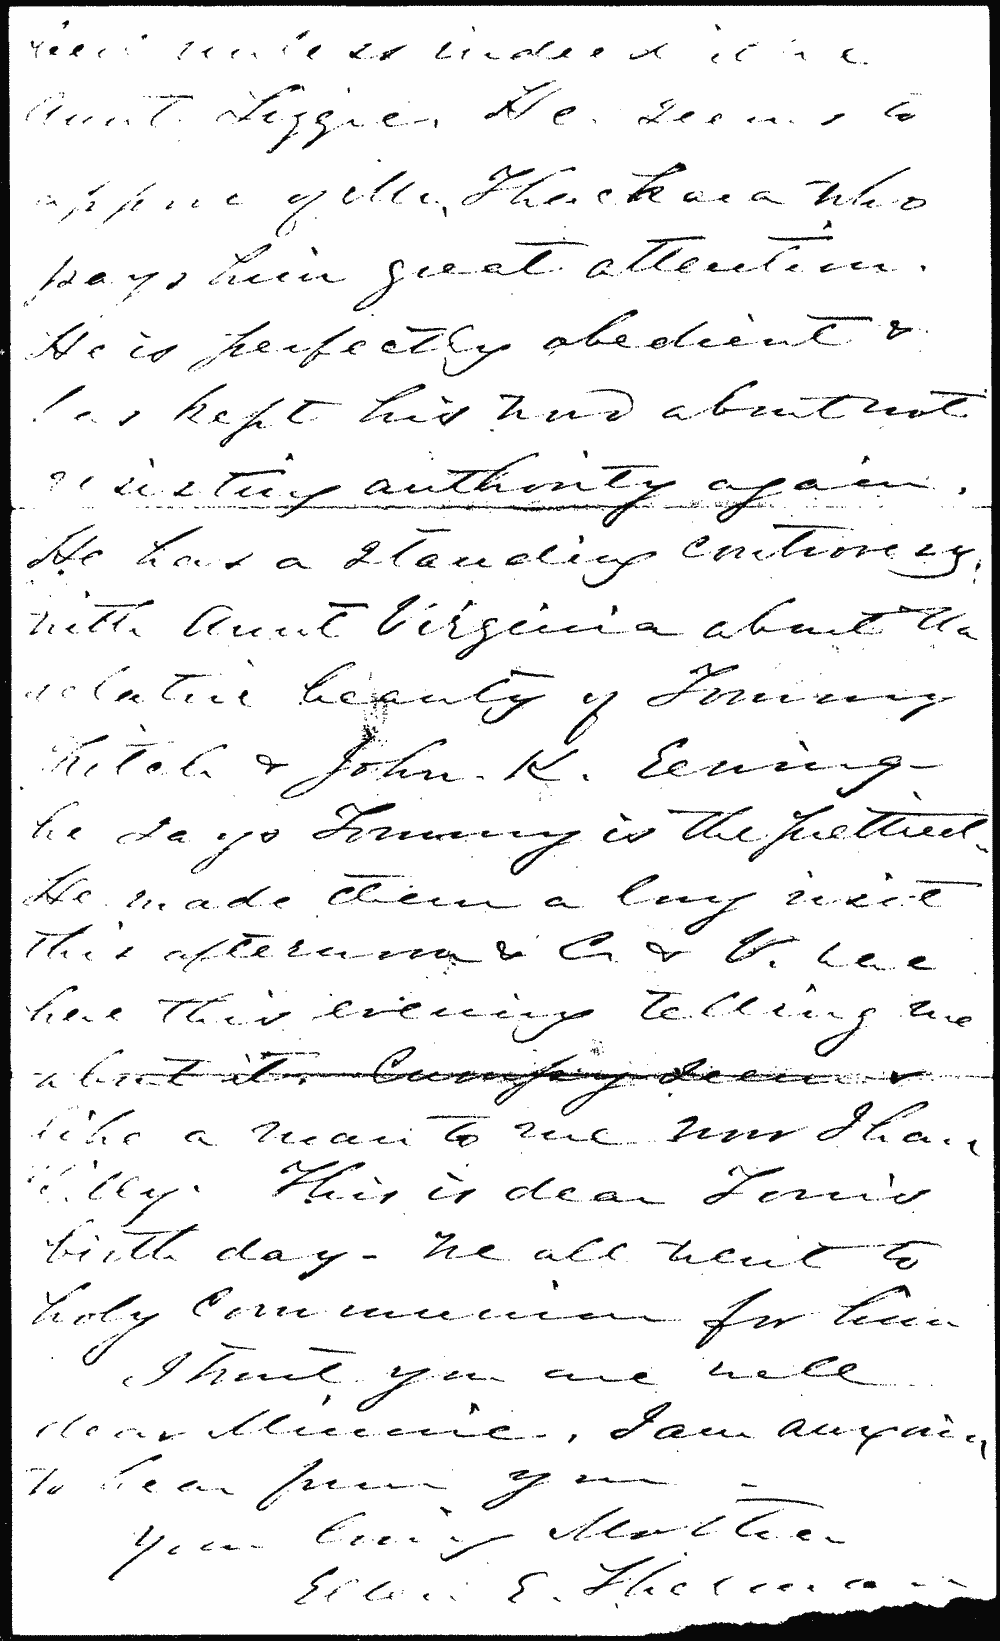 unless indeed it be
Aunt Lizzie. He seems to
approve of Mr. Thackara who
pays him great attention.
He is perfectly obedient &
has kept his word about not
resisting authority again.
He has a standing controversy
with Aunt Virginia about the
relative beauty of Tommy
Fitch & John K. Ewing
he says Tommy is the prettiest.
He made them a long visit
this afternoon & C. & V. were
here this evening telling me
about it. Cumpy seems
like a man to me now I have
Willy. This is dear Tom's
birth day - We all went to
holy Communion for him
I trust you are well
dear Minnie. I am anxious
to hear from you -
Your loving Mother
Ellen E. Sherman